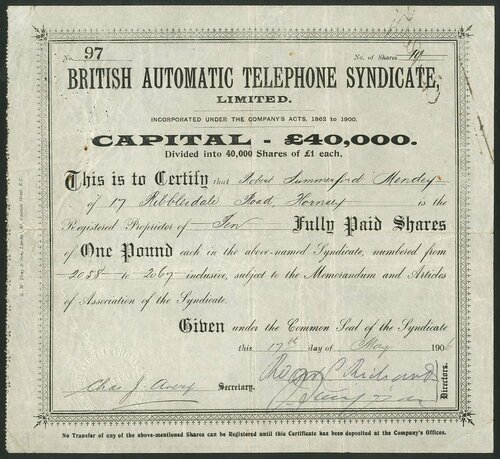 No. 97 No. of Shares 10
BRITISH AUTOMATIC TELEPHONE SYNDICATE,
LIMITED.
INCORPORATED UNDER THE COMPANY'S ACTS, 1862 to 1900.
CAPITAL - £40,000.
Divided into 40,000 Shares of £1 each.
This is to Certify that Robert Summerford Mendey
of 17 Ribblesdale Road, Hornsey is the
Registered Proprietor of Ten Fully Paid Shares
of One Pound each in the above-named Syndicate, numbered from
2058 to 2067 inclusive, subject to the Memorandum and Articles
of Association of the Syndicate.
Given under the Common Seal of the Syndicate
this 17th day of May 1906
Chas J. Avery Secretary.
Directors.
No Transfer of any of the above-mentioned Shares can be Registered until this Certificate has been deposited at the Company's Offices.